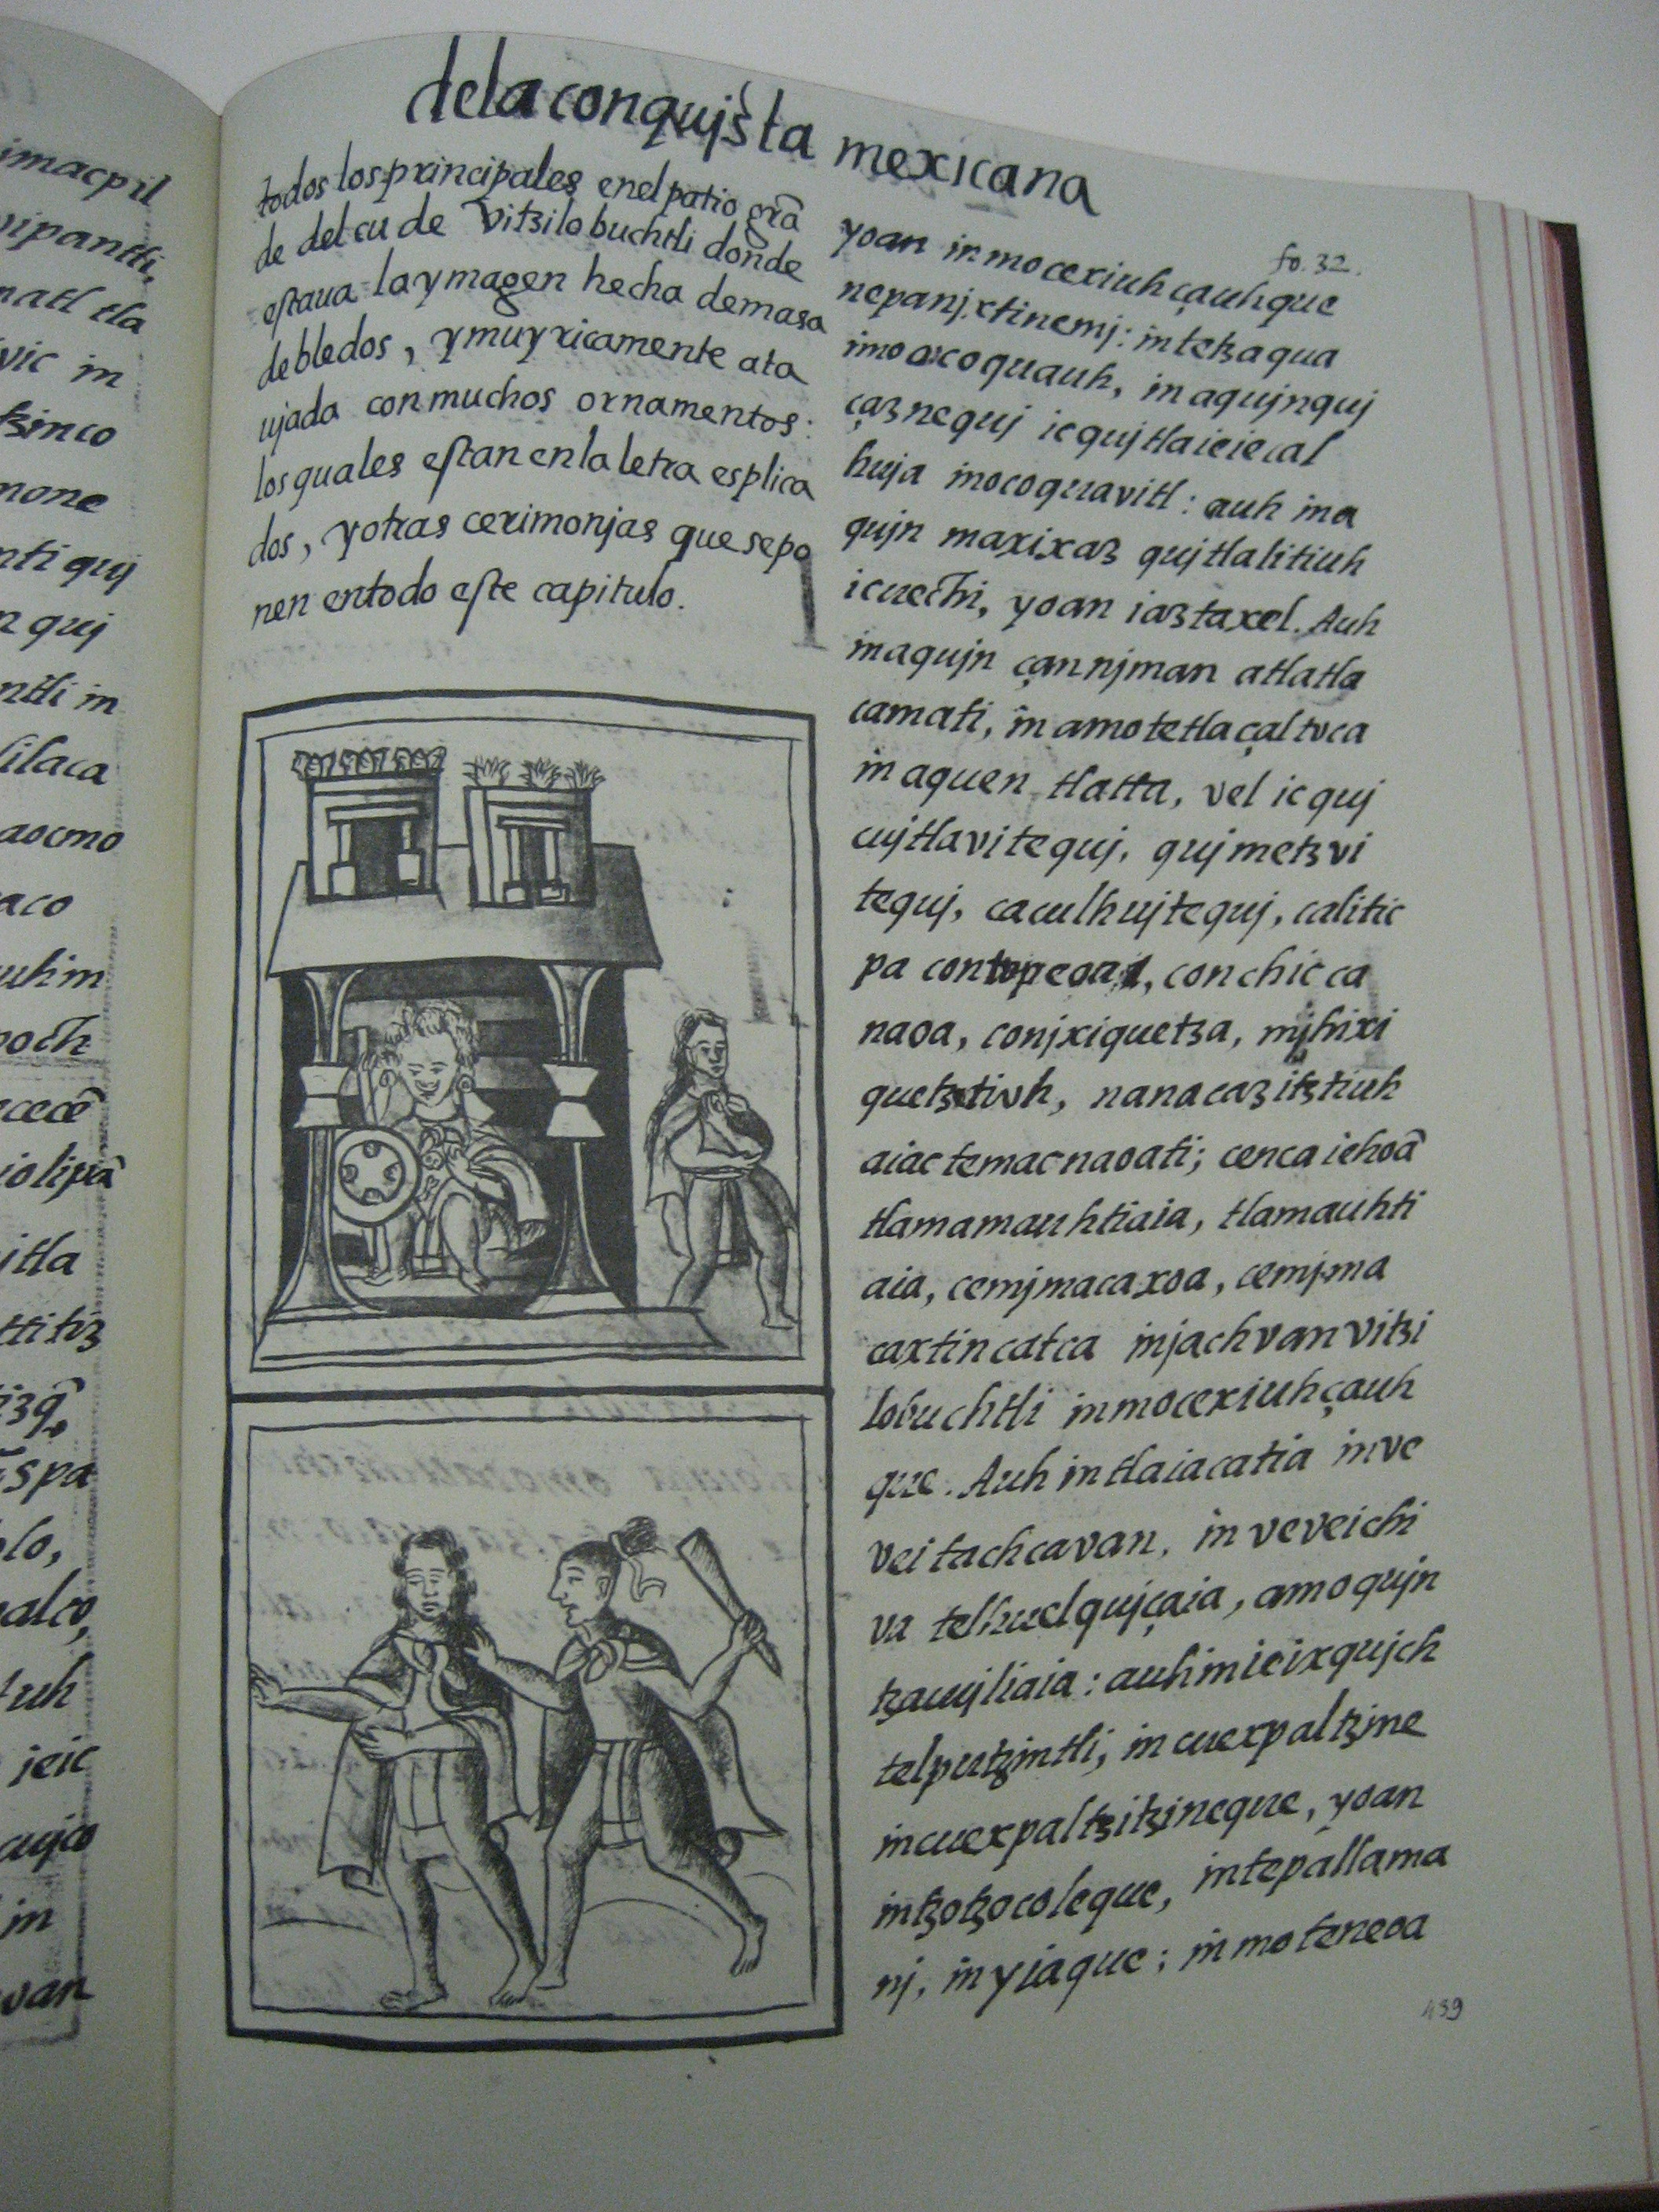 imacpil
vipantli,
matl tla
vic in
tzinco
mone
nti quj
n quj
ntli in
ilaca
aocmo
aco
uhim
poch
cecē
iolipā
itla
ttitiz
izq̄
spa
lo,
palco,
tuh
ieic
aujco
in
van
dela conqujsta mexicana
todos los principales enel patio grā
de del cu de Vitzilobuchtli donde
estaua la ymagen hecha demasa
de bledos, y muy ricamente ata
ujada con muchos ornamentos:
los quales estan en la letra esplica
dos, y otras cerimonjas que se po
nen en todo este capitulo.
fo. 32.
yoan in mocexiuhçauhque
nepanjxtinemj: in tetzaqua
imocxoquauh, in aqujn quj
çaznequj ic qujtlaieiecal
huja inocoquavitl: auh in a
qujn maxixaz qujtlalitiuh
icuechi, yoan iaztaxel. Auh
in aqujn çan njman atlatla
camati, in amo tetlaçaltoca
in aquen tlatta, vel ic quj
cujtlavitequj, qujmetzvi
tequj, caculhujtequj, calitic
pa contopeoa, conchicca
naoa, conjxiquetza, mjhixi
quetztivh, nanacazitztiuh
aiac temac naoati; cenca iehoā
tlamamauhtiaia, tlamauhti
aia, cemjmacaxoa, cemjma
caxtin catca injachvan vitzi
lobuchtli in mocexiuhçauh
que. Auh in tlaiacatia inve
vei tachcavan, in veveichi
va telhuelqujçaia, amo qujn
tzacujliaia: auh in ie ixqujch
telputzintli, in cuexpaltzine
in cuexpaltzitzineque, yoan
in tzotzocoleque, in tepallama
nj, in yiaque; in moteneoa
439